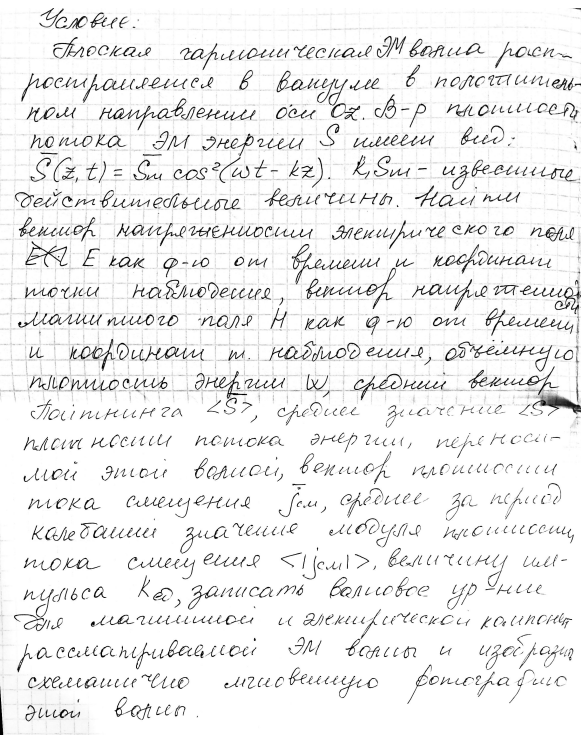 Условие:
Плоская гармоническая ЭМ волна расп-
ространяется в вакууме в положитель-
ном направлении оси Oz. В-р плотности
потока ЭМ энергии S имеет вид:
S̅(z,t) = S̅m cos²(ωt - kz). K, Sm - известные
действительные величины. Найти
вектор напряженности электрического поля
E как ф-ю от времени и координат
точки наблюдения, вектор напряженности
магнитного поля H как ф-ю от времени
и координат т. наблюдения, объёмную
плотность энергии W, средний вектор
Пойтнинга <S̅>, среднее значение <S>
плотности потока энергии, переноси-
мой этой волной, вектор плотности
тока смещения j̅см, среднее за период
колебаний значение модуля плотности
тока смещения <|jсм|>, величину им-
пульса Kед, записать волновое ур-ние
для магнитной и электрической компонент
рассматриваемой ЭМ волны и изобразить
схематично мгновенную фотографию
этой волны.